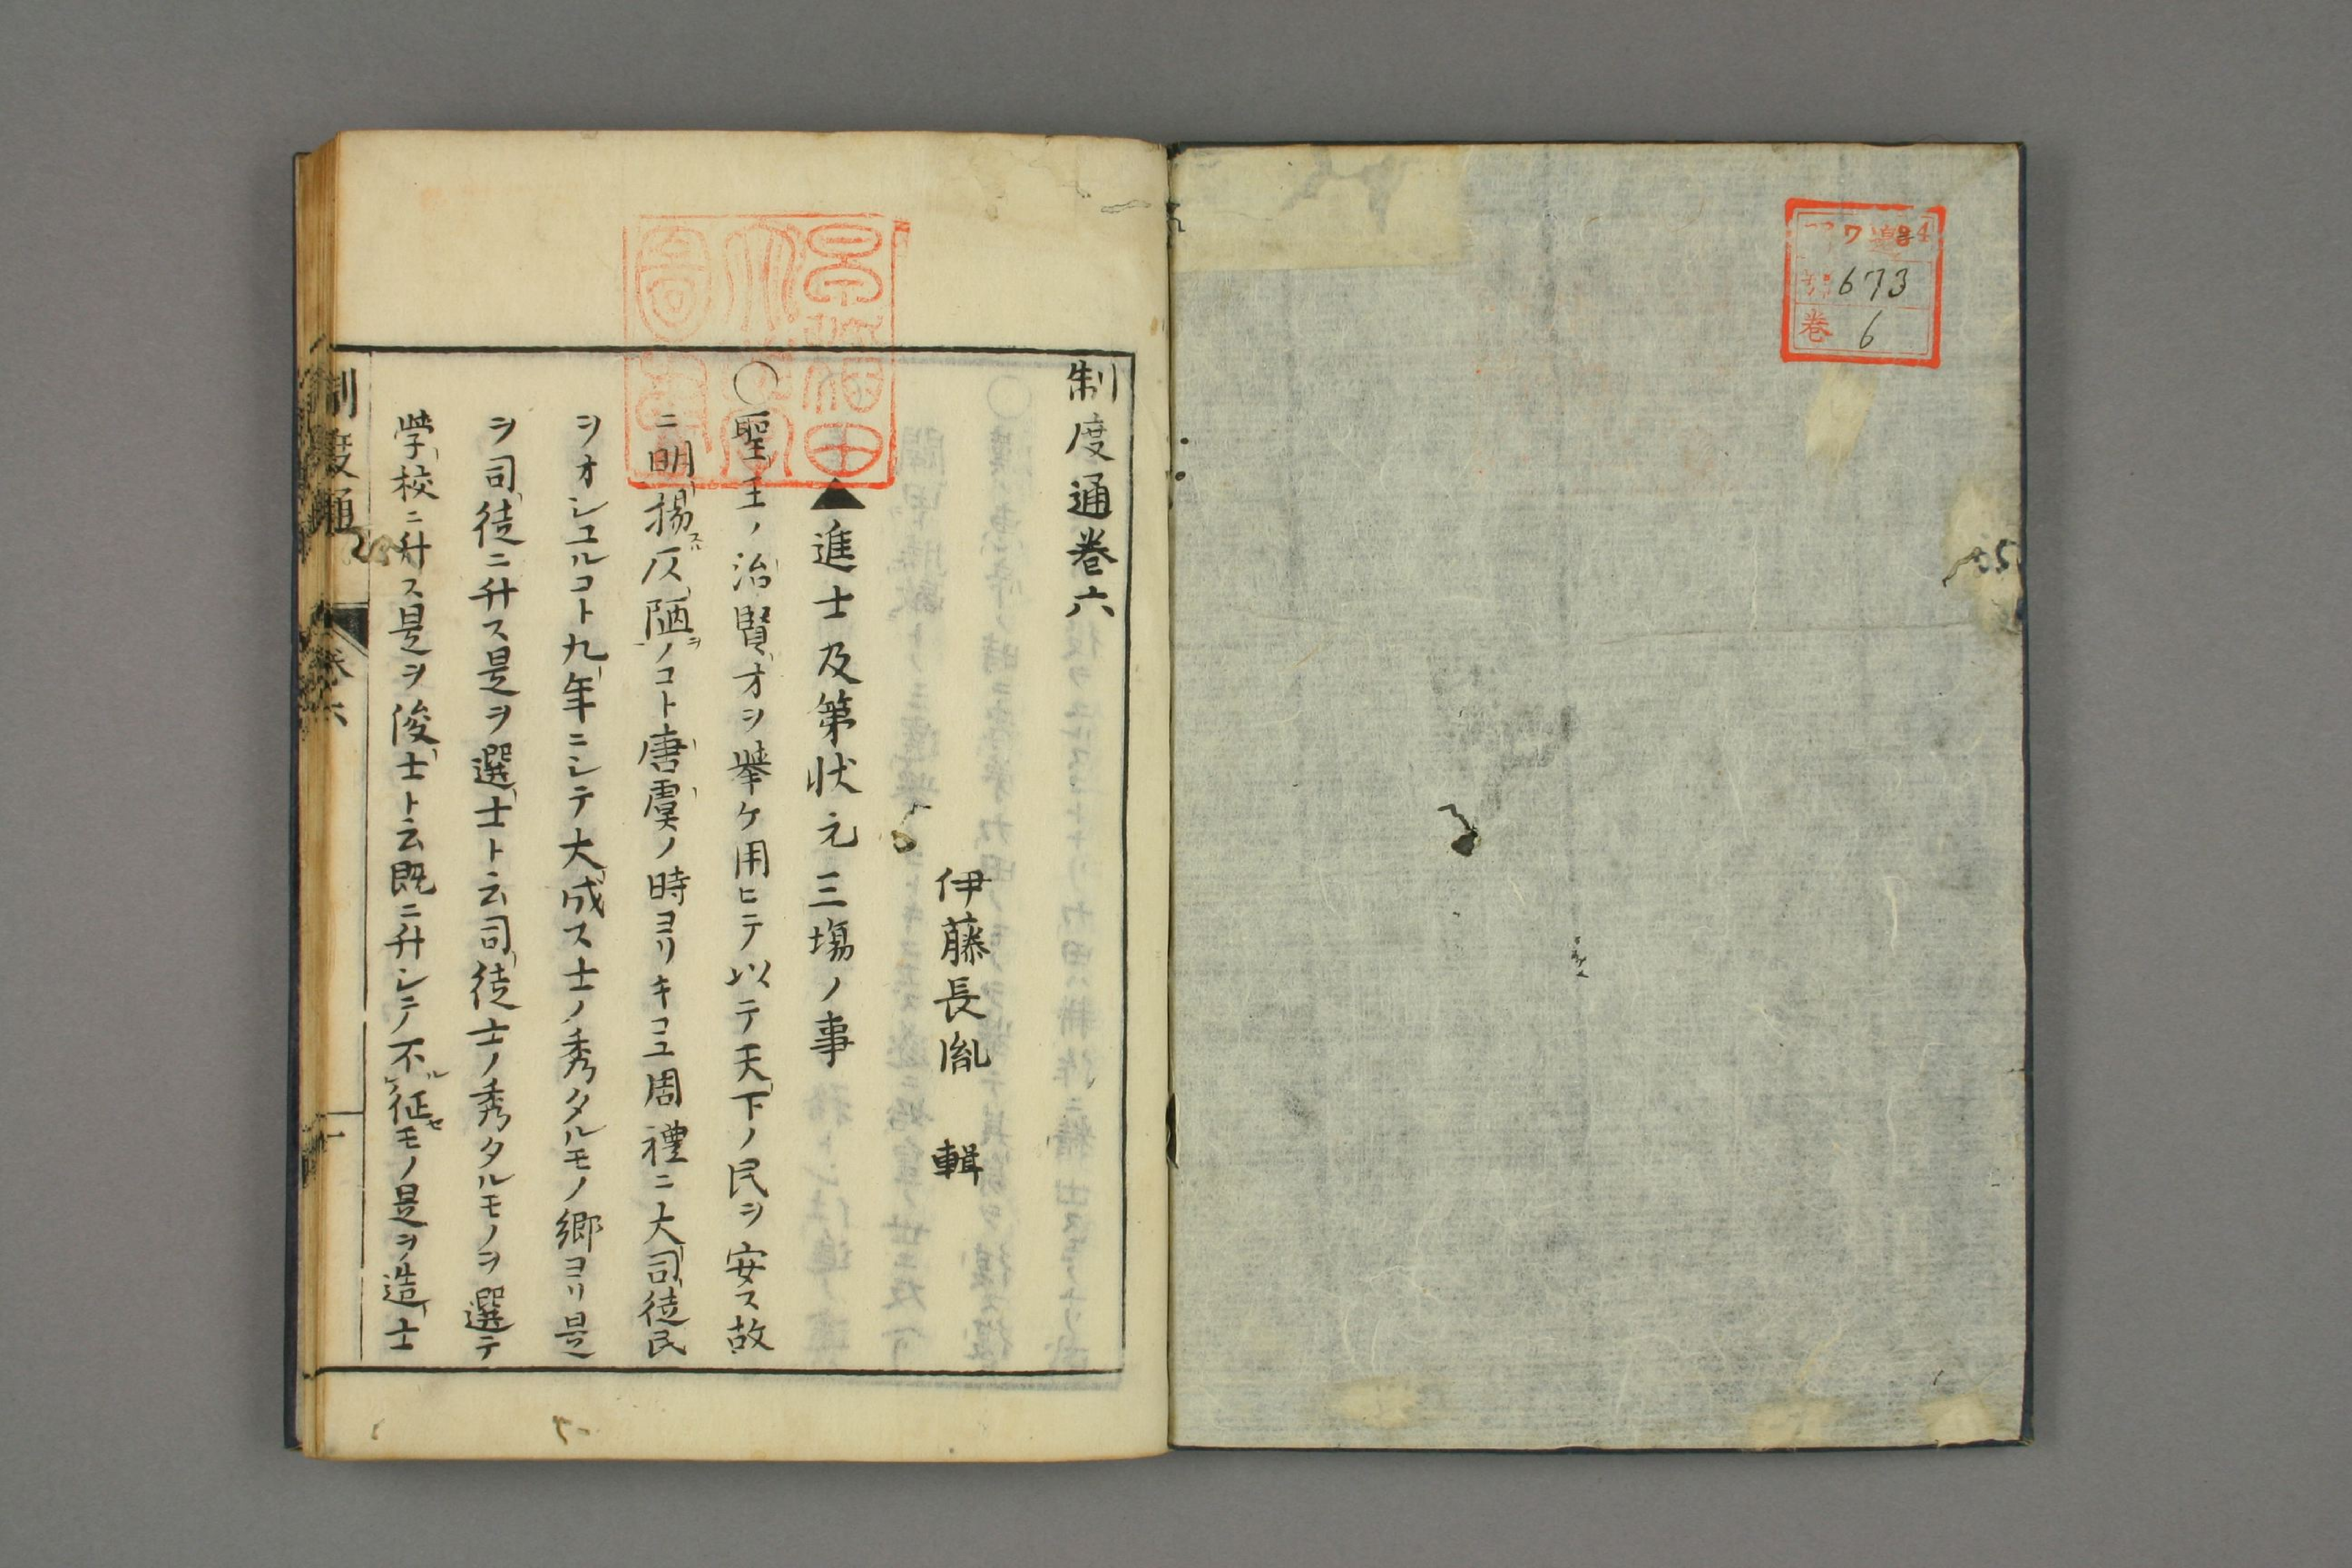 673
巻 6
制度通巻六
伊藤長胤 輯
▲進士及第状元三塲ノ事
○聖王ノ治賢才ヲ擧ケ用ヒテ以テ天下ノ民ヲ安ス故
ニ明揚スル仄陋ヲノコト唐虞ノ時ヨリキコユ周禮ニ大司徒民
ヲオシユルコト九年ニシテ大成ス士ノ秀タルモノ郷ヨリ是
ヲ司徒ニ升ス是ヲ選士ト云司徒士ノ秀タルモノヲ選テ
學校ニ升ス是ヲ俊士ト云既ニ升シテ不ル征セモノ是ヲ造士
制度通
巻六
一